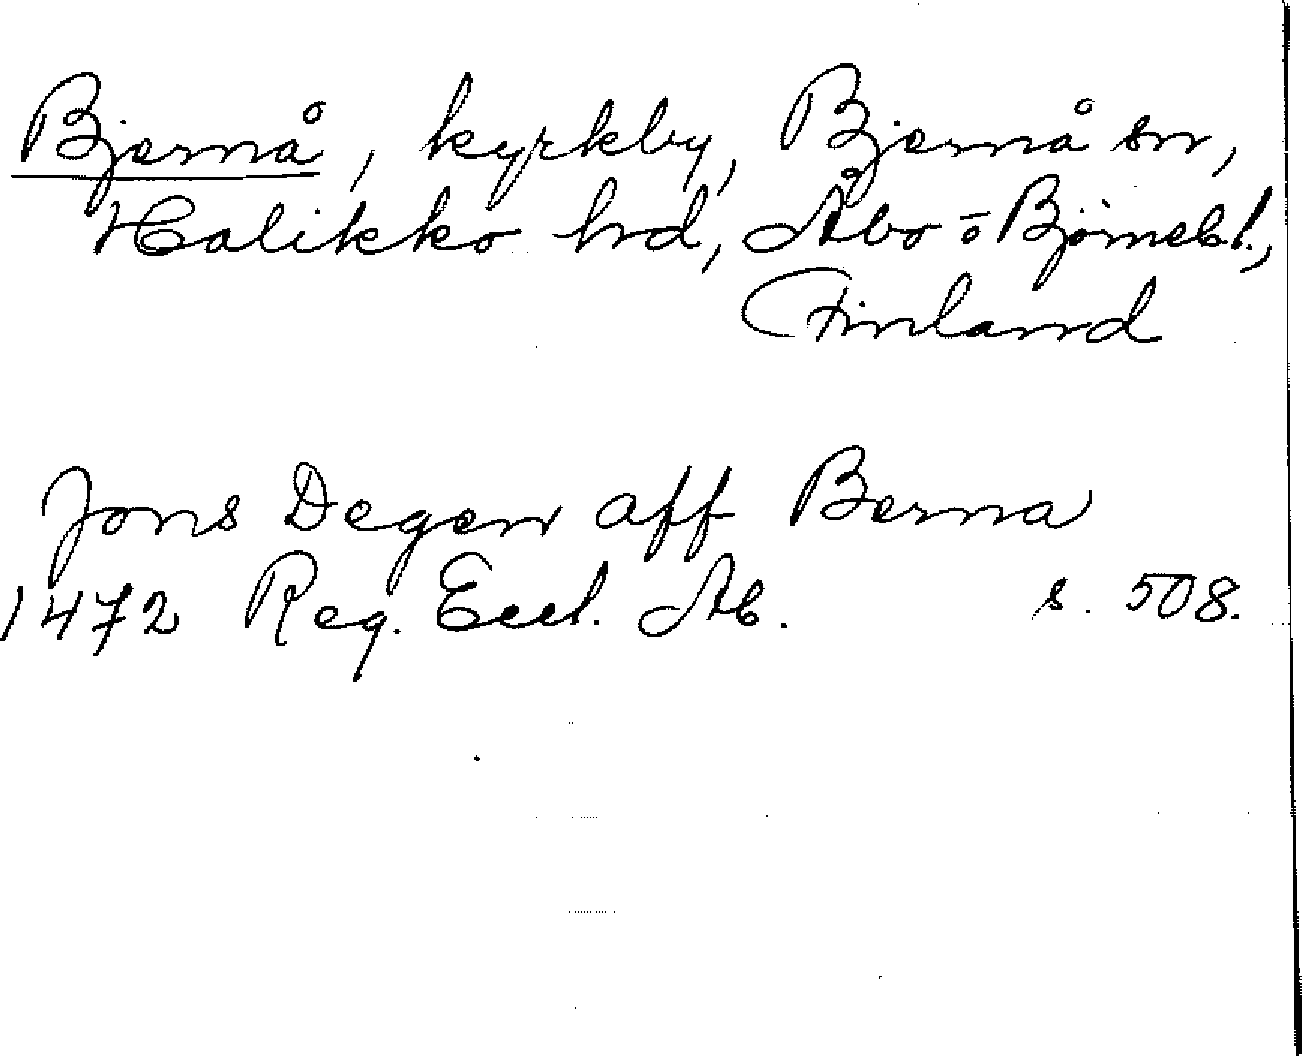 Bjernå, kyrkby, Bjernå sn,
Halikko hd, Åbo o Björnebl.,
Finland
Jons Degen aff Berna
1472 Reg. Eccl. Ab. s. 508.